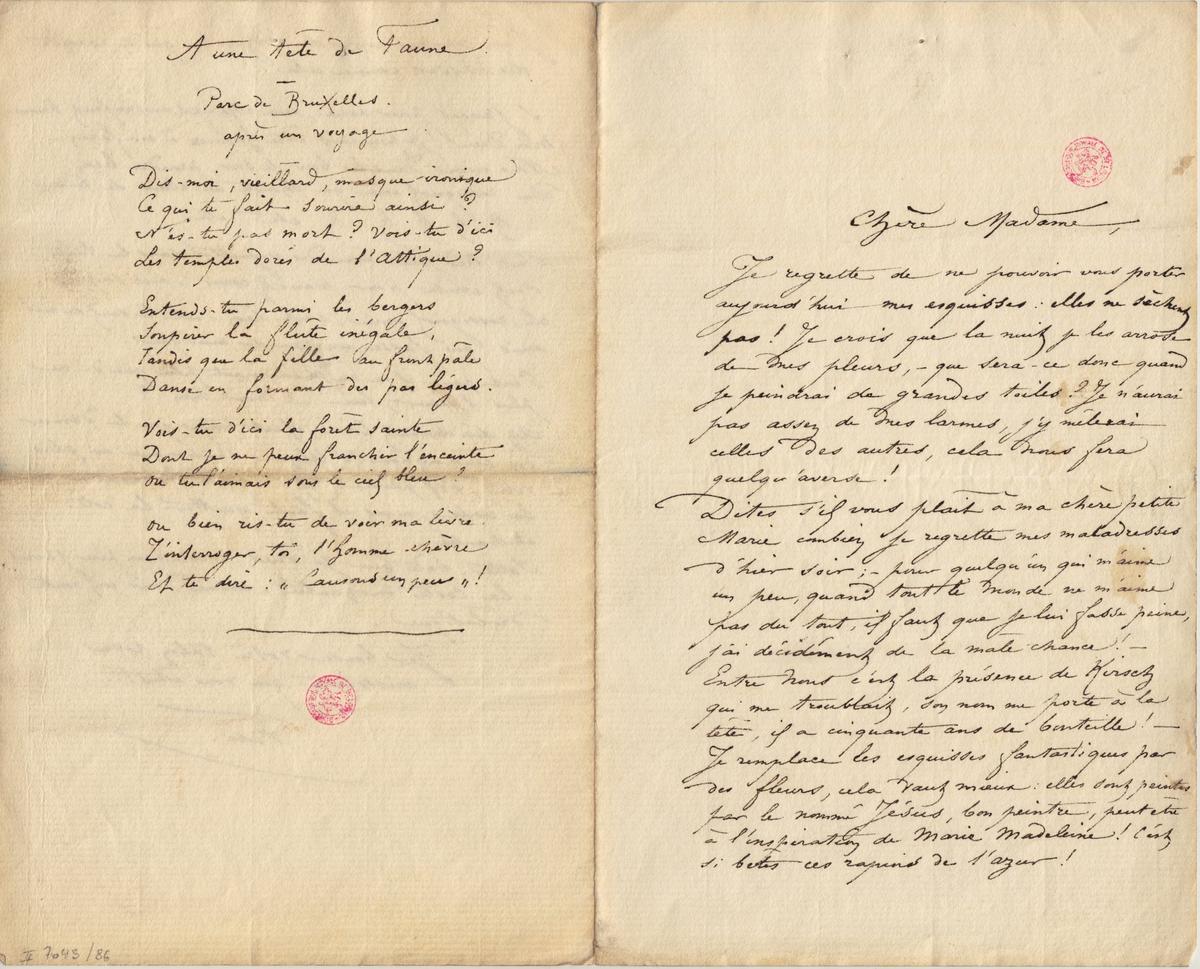 A une tête de Faune
Parc de Bruxelles.
après un voyage
Dis-moi, vieillard, masque ironique
Ce qui te fait sourire ainsi ?
N'es-tu pas mort ? Vois-tu d'ici
Les temples dorés de l'Attique ?
Entends-tu parmi les bergers
Soupirer la flûte inégale,
Tandis que la fille au front pâle
Danse en formant des pas légers.
Vois-tu d'ici la forêt sainte
Dont je ne peux franchir l'enceinte
ou tu l'aimais sous le ciel bleu ?
ou bien ris-tu de voir ma lèvre
T'interroger, toi, l'homme-chèvre
Et te dire : „ Causons un peu „ !
II 7043/86
Chère Madame,
Je regrette de ne pouvoir vous porter
aujourd'hui mes esquisses : elles ne sèchent
pas ! Je crois que la nuit je les arrose
de mes pleurs, - que sera-ce donc quand
je peindrai de grandes toiles ? Je n'aurai
pas assez de mes larmes, j'y mêlerai
celles des autres, cela nous fera
quelqu'averse !
Dites s'il vous plait à ma chère petite
Marie combien je regrette mes maladresses
d'hier soir ; - pour quelqu'un qui m'aime
un peu, quand tout le monde ne m'aime
pas du tout, il faut que je lui fasse peine,
j'ai décidément de la male chance ! -
Entre nous c'est la présence de Kirsch
qui me troublait, son nom me porte à la
tête, il a cinquante ans de bouteille ! -
Je remplace les esquisses fantastiques par
des fleurs, cela vaut mieux : elles sont peintes
par le nommé Jésus, bon peintre, peut etre
à l'inspiration de Marie Madeleine ! C'est
si betes ces rapins de l'azur !